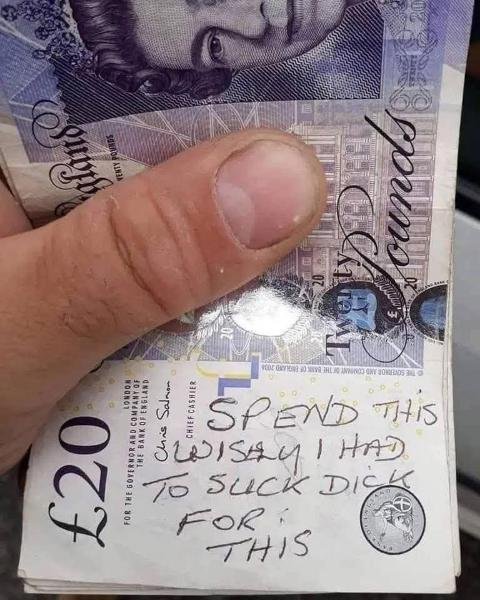 gland
ENTY POUNDS
Twenty
Pounds
20
20
20
£
© THE GOVERNOR AND COMPANY OF THE BANK OF ENGLAND 2006
£20
FOR THE GOVERNOR AND COMPANY OF
THE BANK OF ENGLAND
LONDON
Chris Salmon
CHIEF CASHIER
SPEND THIS
WISELY I HAD
TO SUCK DICK
FOR
THIS